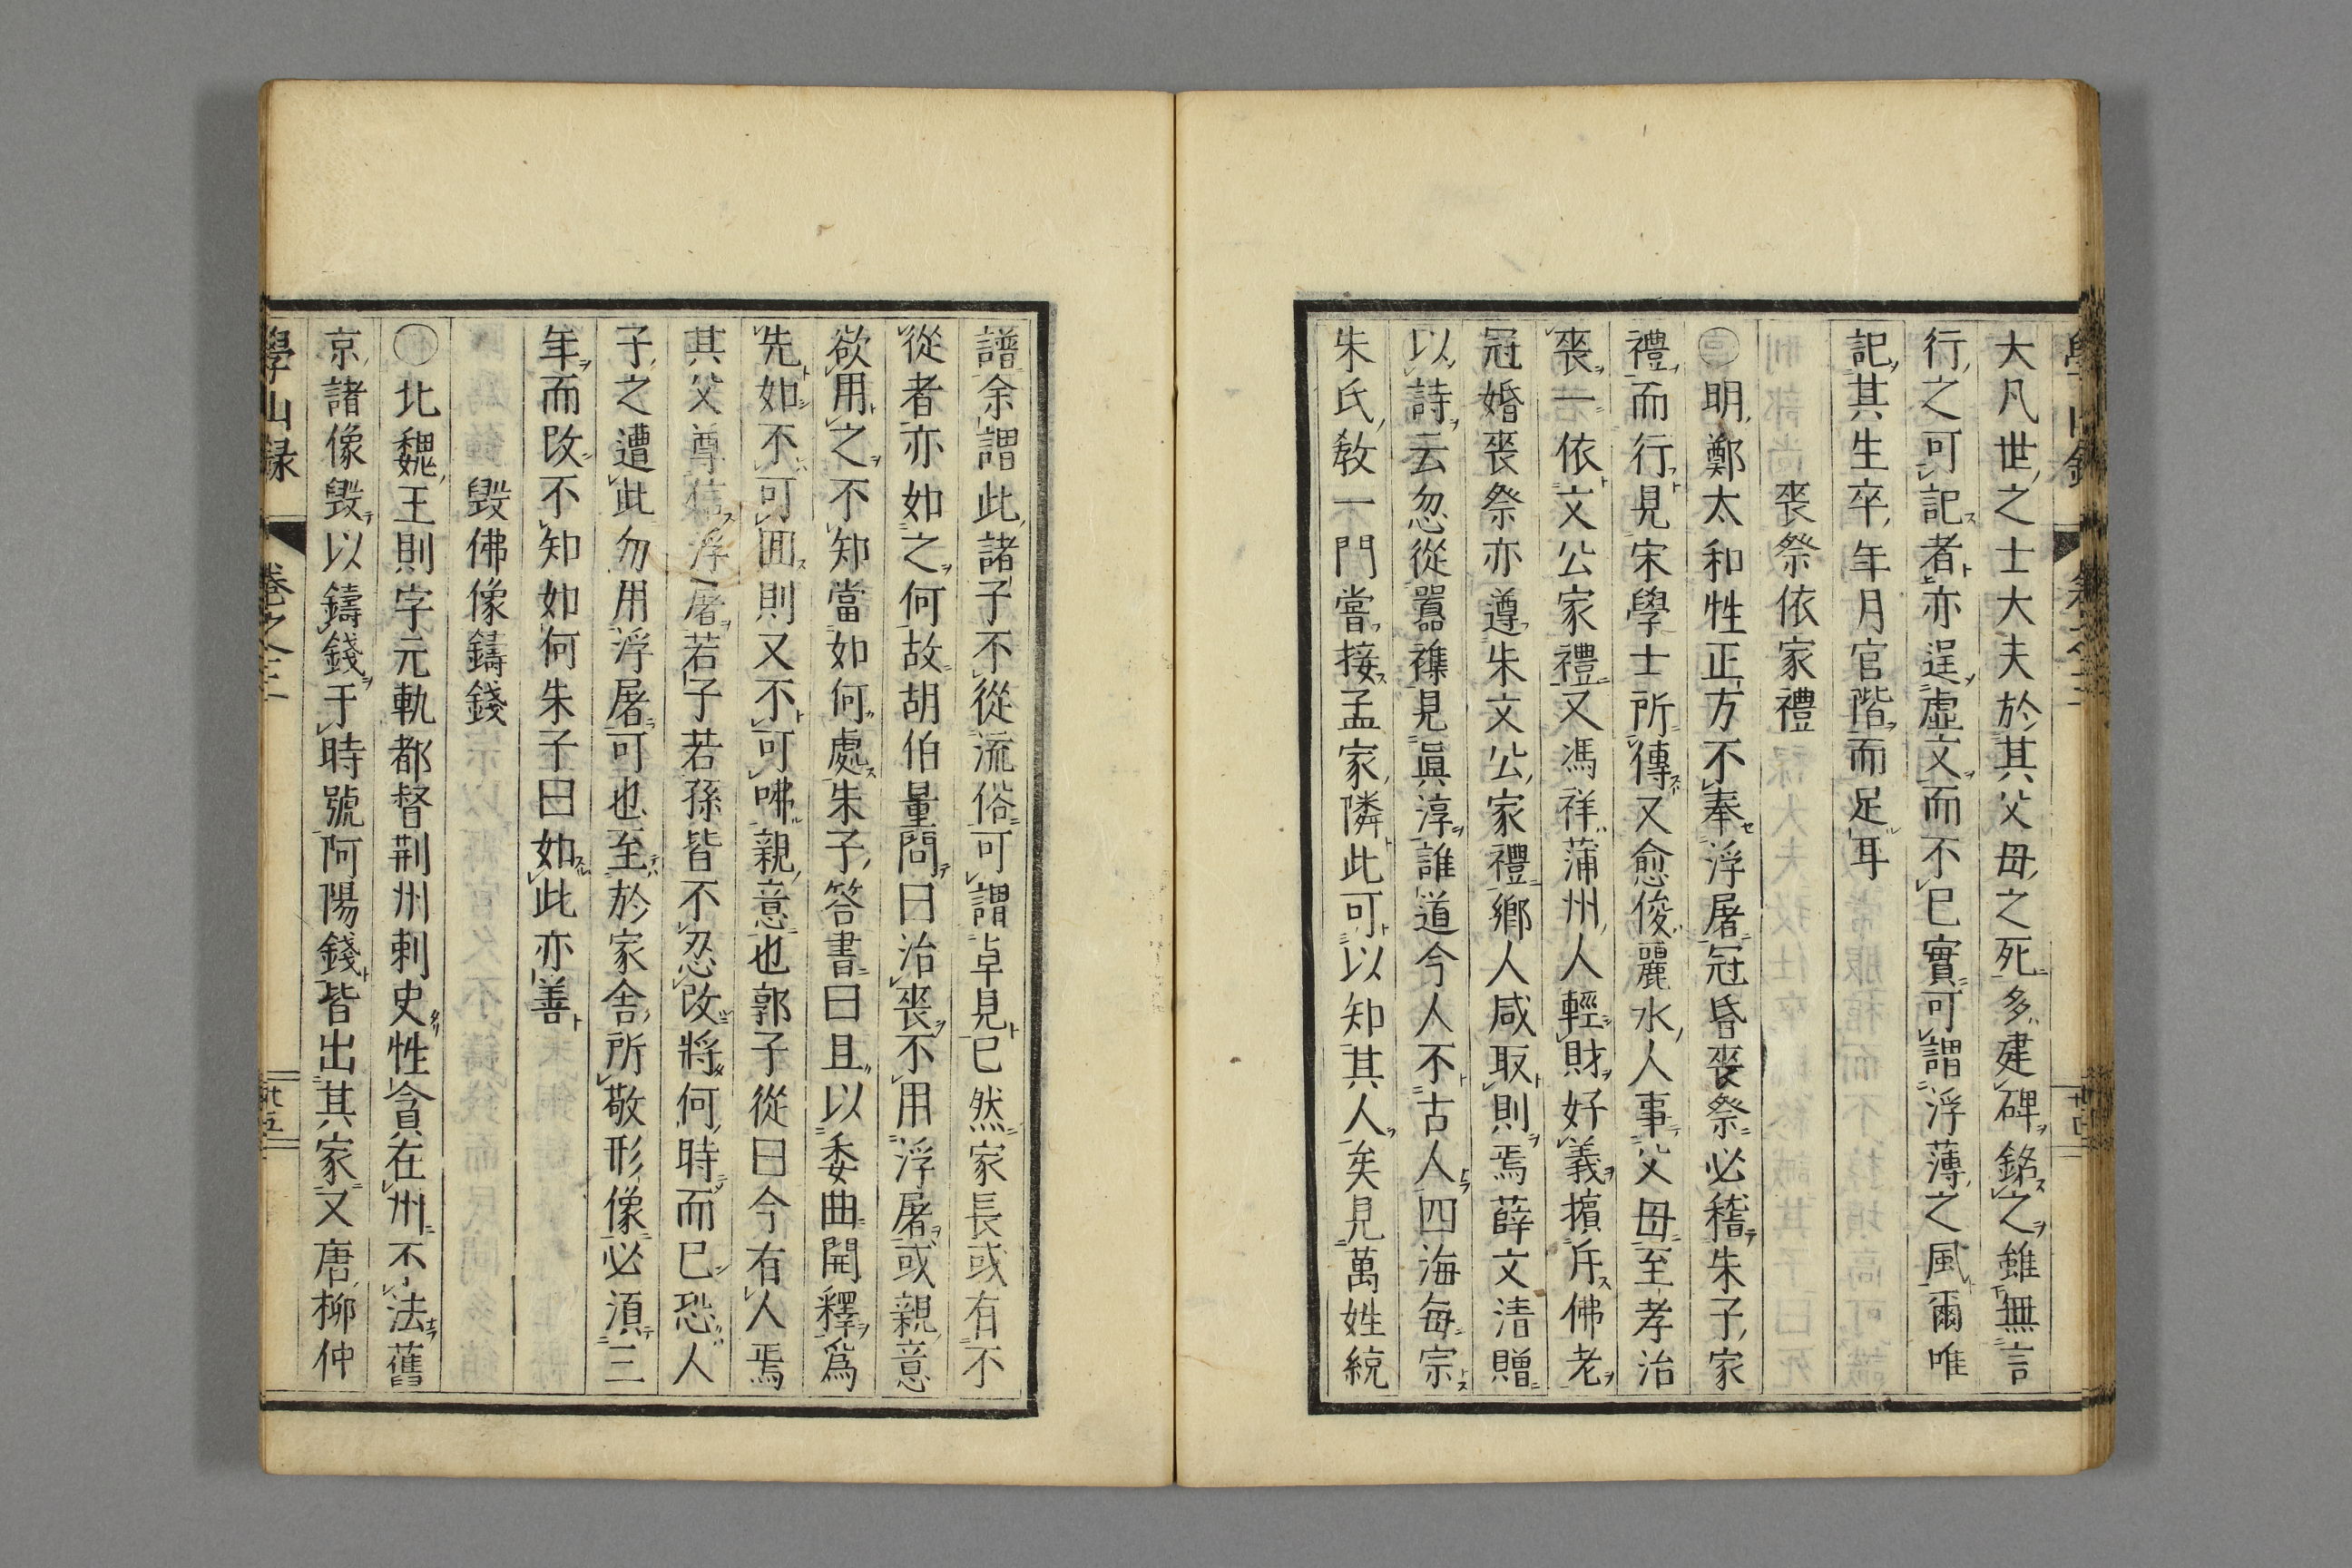 大凡世之士大夫於其父母之死多建碑銘之雖無言
行之可記者亦逞虛文而不已實可謂浮薄之風爾唯
記其生卒年月官階而足耳
喪祭依家禮
〇明鄭太和性正方不奉浮屠冠昏喪祭必稽朱子家
禮而行見宋學士所傳又愈俊麗水人事父母至孝治
喪一依文公家禮又馮祥蒲州人輕財好義擯斥佛老
冠婚喪祭亦遵朱文公家禮鄉人咸取則焉薛文清贈
以詩云忽從囂襍見眞淳誰道今人不古人四海每宗
朱氏敎一門當接孟家隣此可以知其人矣見萬姓統
譜余謂此諸子不從流俗可謂卓見已然家長或有不
從者亦如之何故胡伯量問曰治喪不用浮屠或親意
欲用之不知當如何處朱子答書曰且以委曲開釋爲
先如不可囬則又不可咈親意也郭子從曰今有人焉
其父尊信浮屠若子若孫皆不忍改將何時而已恐人
子之遭此勿用浮屠可也至於家舍所敬形像必須三
年而改不知如何朱子曰如此亦善
毀佛像鑄錢
〇北魏王則字元軌都督荆州刺史性貪在州不法舊
京諸像毀以鑄錢于時號阿陽錢皆出其家又唐柳仲
學山録 卷之三 卅五